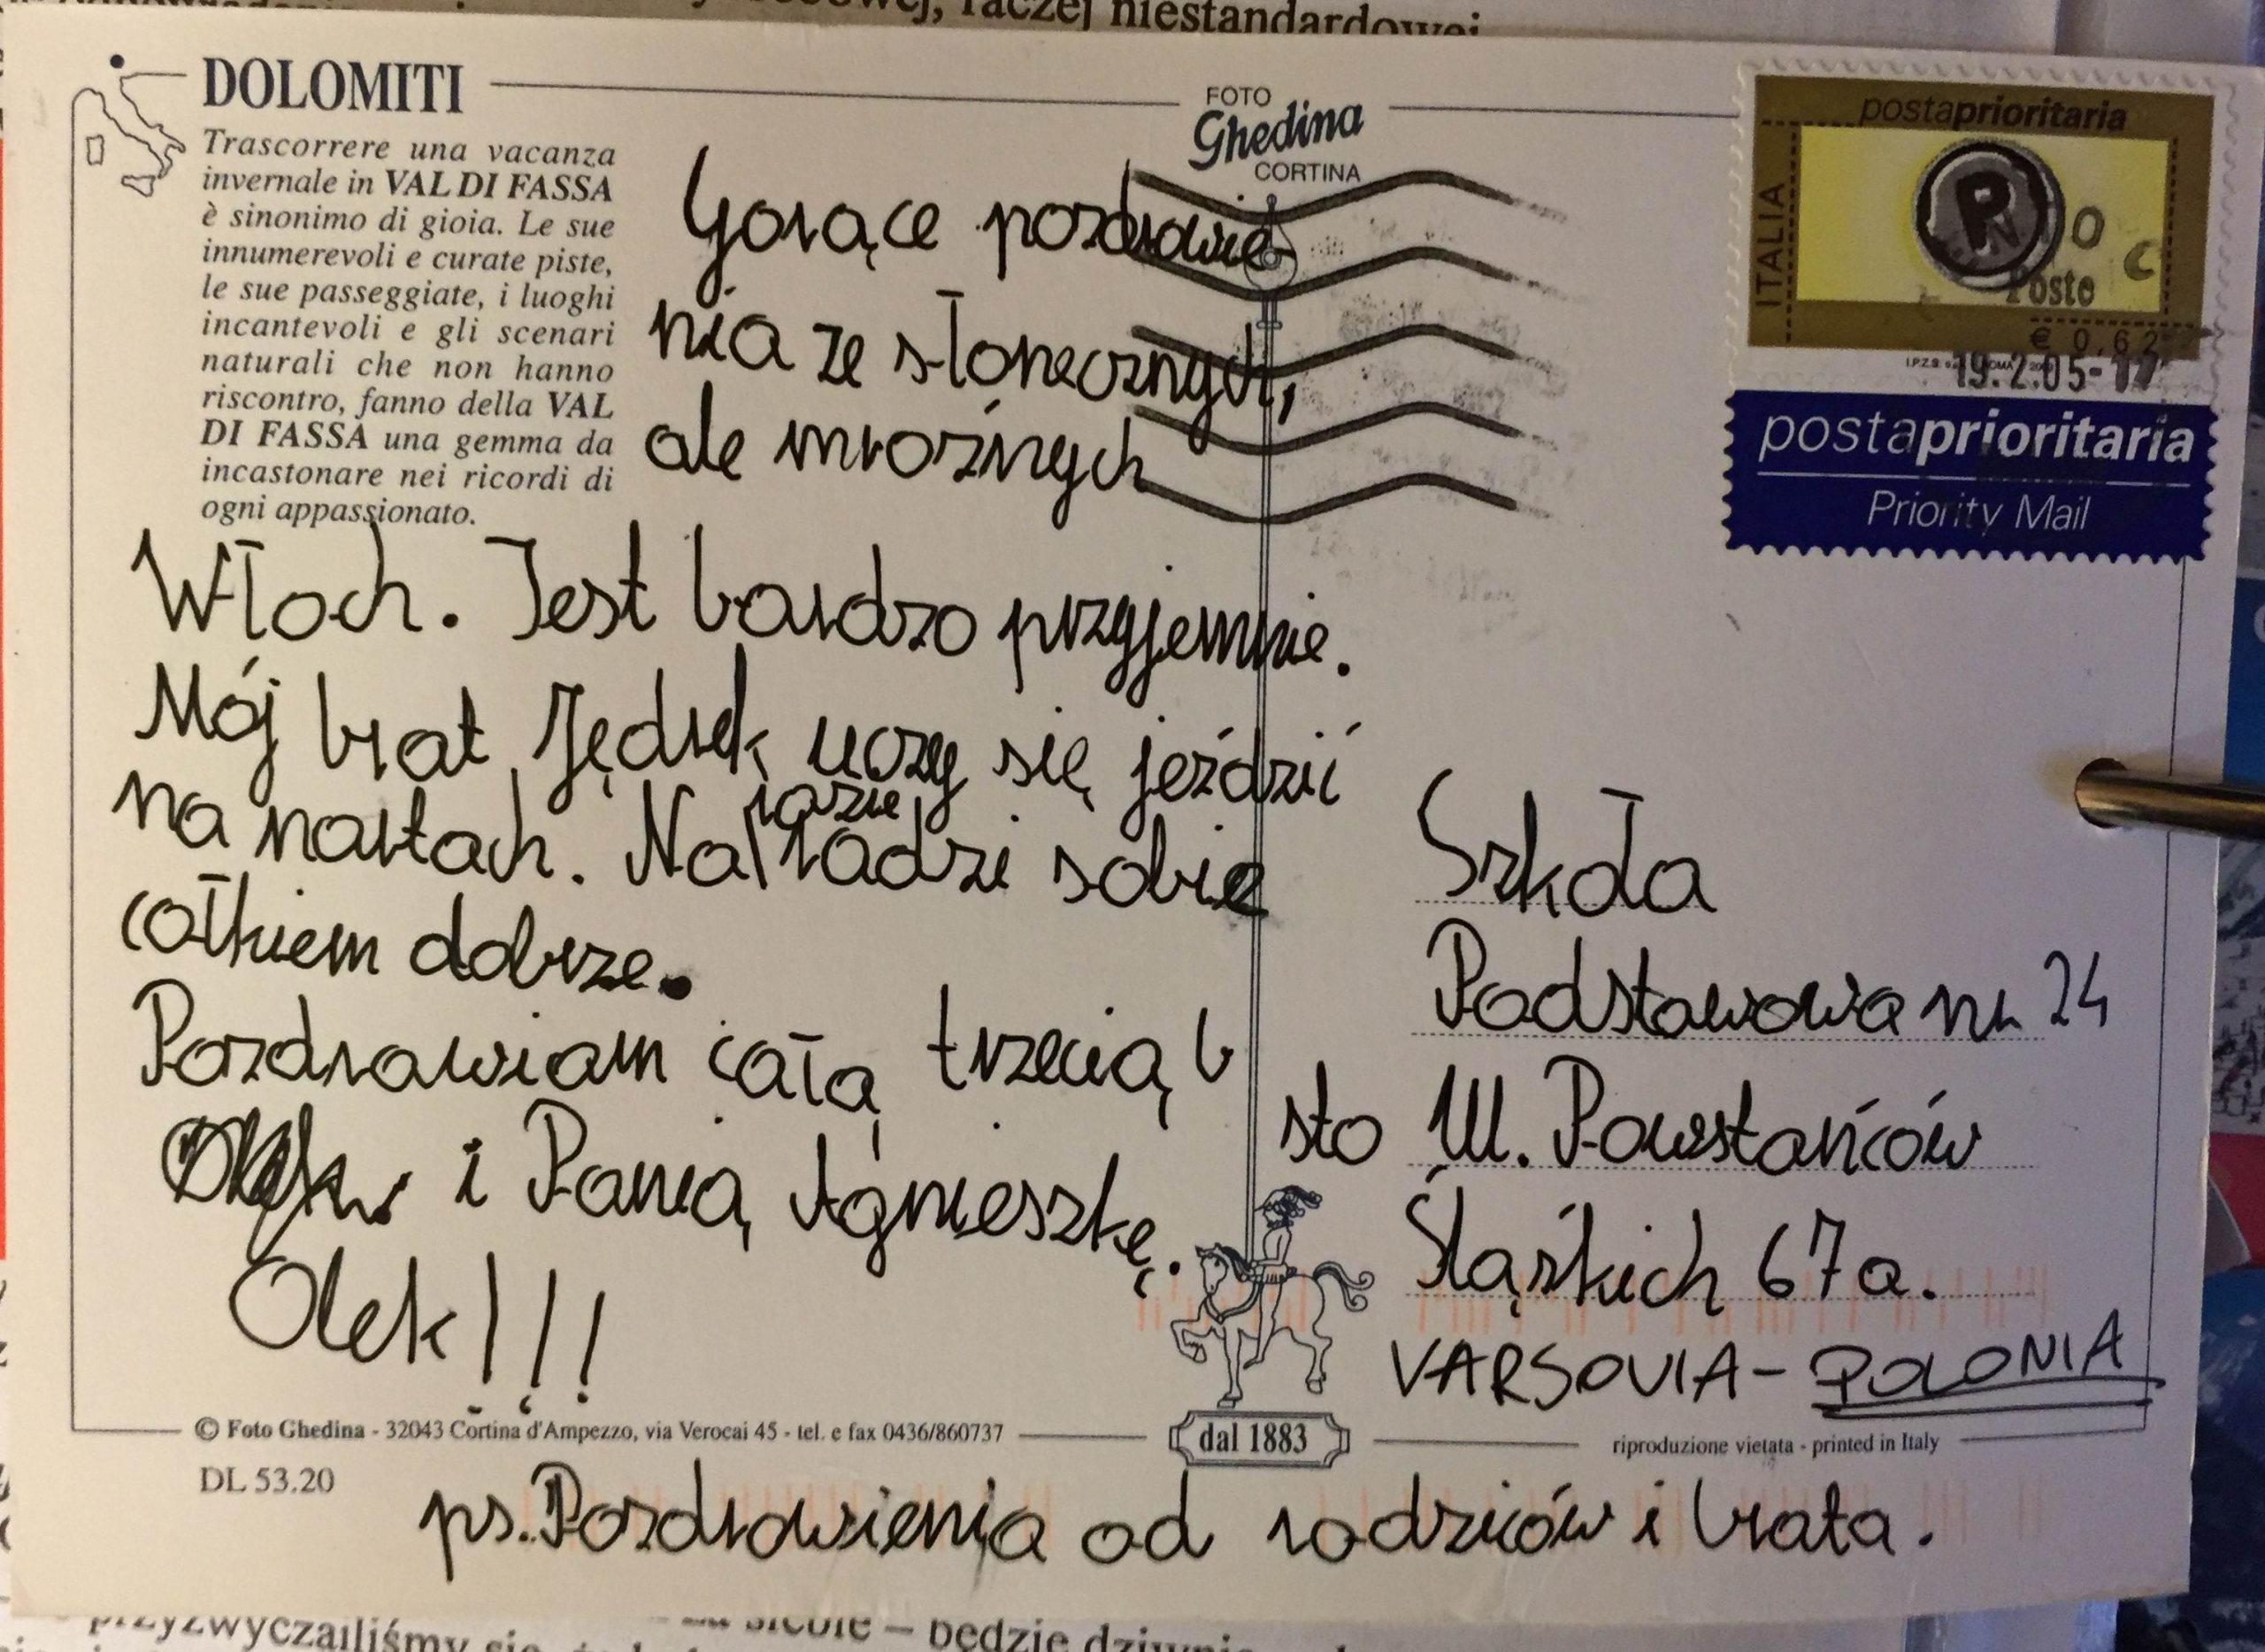 raczej niestandardowej
DOLOMITI
Trascorrere una vacanza
invernale in VAL DI FASSA
è sinonimo di gioia. Le sue
innumerevoli e curate piste,
le sue passeggiate, i luoghi
incantevoli e gli scenari
naturali che non hanno
riscontro, fanno della VAL
DI FASSA una gemma da
incastonare nei ricordi di
ogni appassionato.
FOTO
Ghedina
CORTINA
Gorące pozdrowie-
nia ze słonecznych,
ale mroźnych
Włoch. Jest bardzo przyjemnie.
Mój brat Jędrek uczy się jeździć
na nartach. Na razie radzi sobie
całkiem dobrze.
Pozdrawiam całą trzecią b
i Panią Agnieszkę.
Olek!!!
postaprioritaria
ITALIA
P
Poste
€ 0,62
19.2.05-17
postaprioritaria
Priority Mail
Szkoła
Podstawowa nr 24
sto Ul. Powstańców
Śląskich 67a.
VARSOVIA - POLONIA
© Foto Ghedina - 32043 Cortina d'Ampezzo, via Verocai 45 - tel. e fax 0436/860737
dal 1883
riproduzione vietata - printed in Italy
DL 53.20
ps. Pozdrowienia od rodziców i brata.
przyzwyczailiśmy
będzie